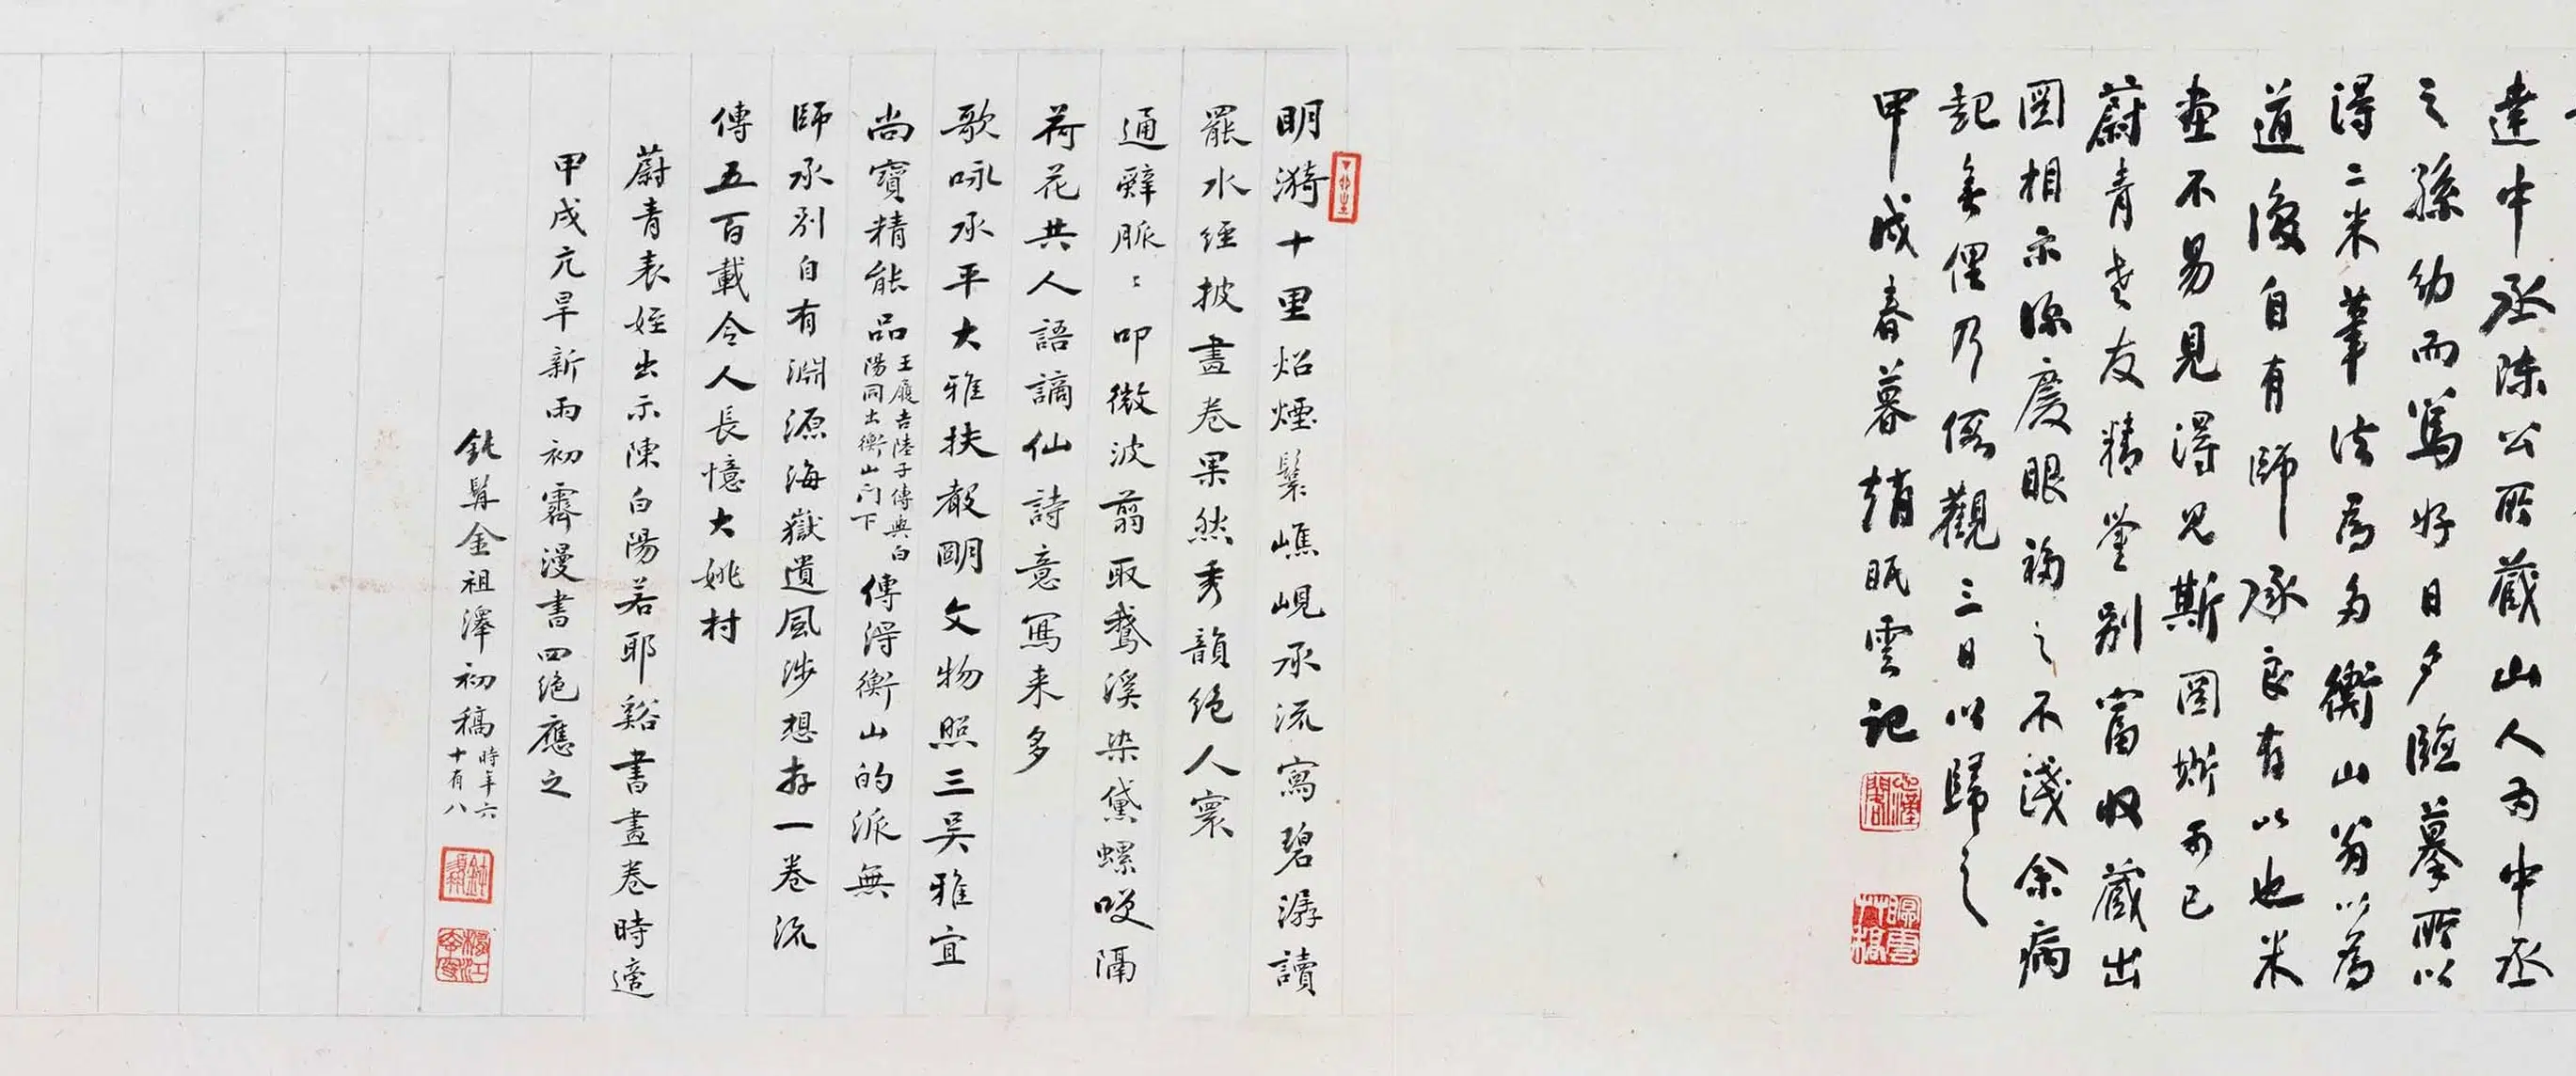 達中丞陳公所藏山人为中丞
之孫幼而篤好日夕臨摹所以
得二米筆法為多衡山翁以為
道復自有師承良有以也米
畫不易見得見斯圖斯可已
蔚青老友精鉴别富收藏出
圖相示深慶眼福之不淺余病
起無俚乃假觀三日以歸之
甲戌春暮趙眠雲記
明漪十里炤煙鬟嶕峴承流寫碧潺讀
罷水經披畫卷果然秀韻絶人寰
通辭脈〻叩微波翦取鵝溪染黛螺笑隔
荷花共人語謫仙詩意寫来多
歌咏承平大雅扶嗀朙文物照三吴雅宜
尚寶精能品王履吉陸子傳與白陽同出衡山门下傳得衡山的派無
師承别自有淵源海嶽遺風涉想存一卷流
傳五百載令人長憶大姚村
蔚青表姪出示陳白陽若耶谿書畫卷時適
甲戌亢旱新雨初霽漫書四绝應之
鈍髯金祖澤初稿時年六十有八